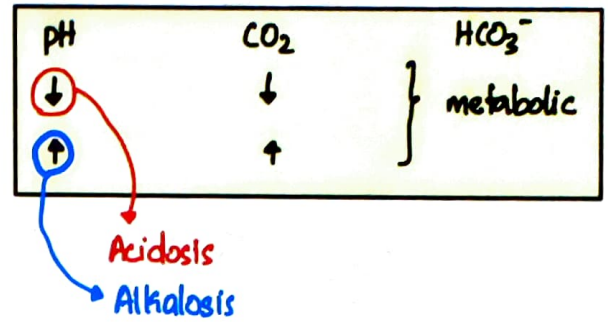 pH CO₂ HCO₃⁻
↓ ↓ } metabolic
↑ ↑
Acidosis
Alkalosis